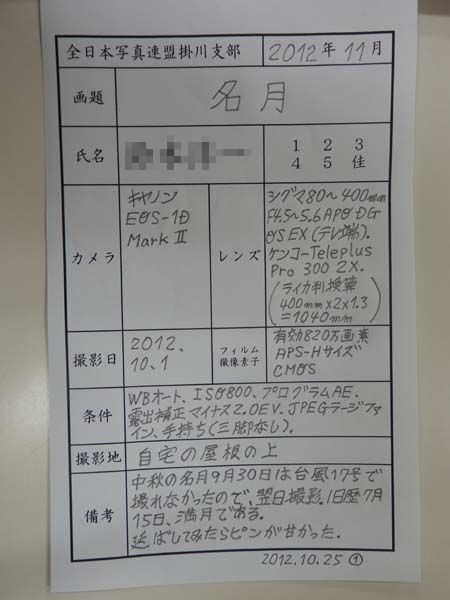 全日本写真連盟掛川支部 2012年11月
画題 名月
氏名 1 2 3
4 5 佳
カメラ
キヤノン
EOS-1D
Mark II
レンズ
シグマ80〜400mm
F4.5〜5.6 APO DG
OS EX (テレ端).
ケンコーTeleplus
Pro 300 2X.
(ライカ判換算
400mm×2×1.3
=1040mm)
撮影日
2012.
10.1
フィルム
撮像素子
有効820万画素
APS-Hサイズ
CMOS
条件
WBオート、ISO800、プログラムAE.
露出補正マイナス2.0EV.JPEGラージファ
イン、手持ち(三脚なし).
撮影地 自宅の屋根の上
備考
中秋の名月9月30日は台風17号で
撮れなかったので、翌日撮影.旧暦7月
15日、満月である.
延ばしてみたらピンが甘かった.
2012.10.25 ①